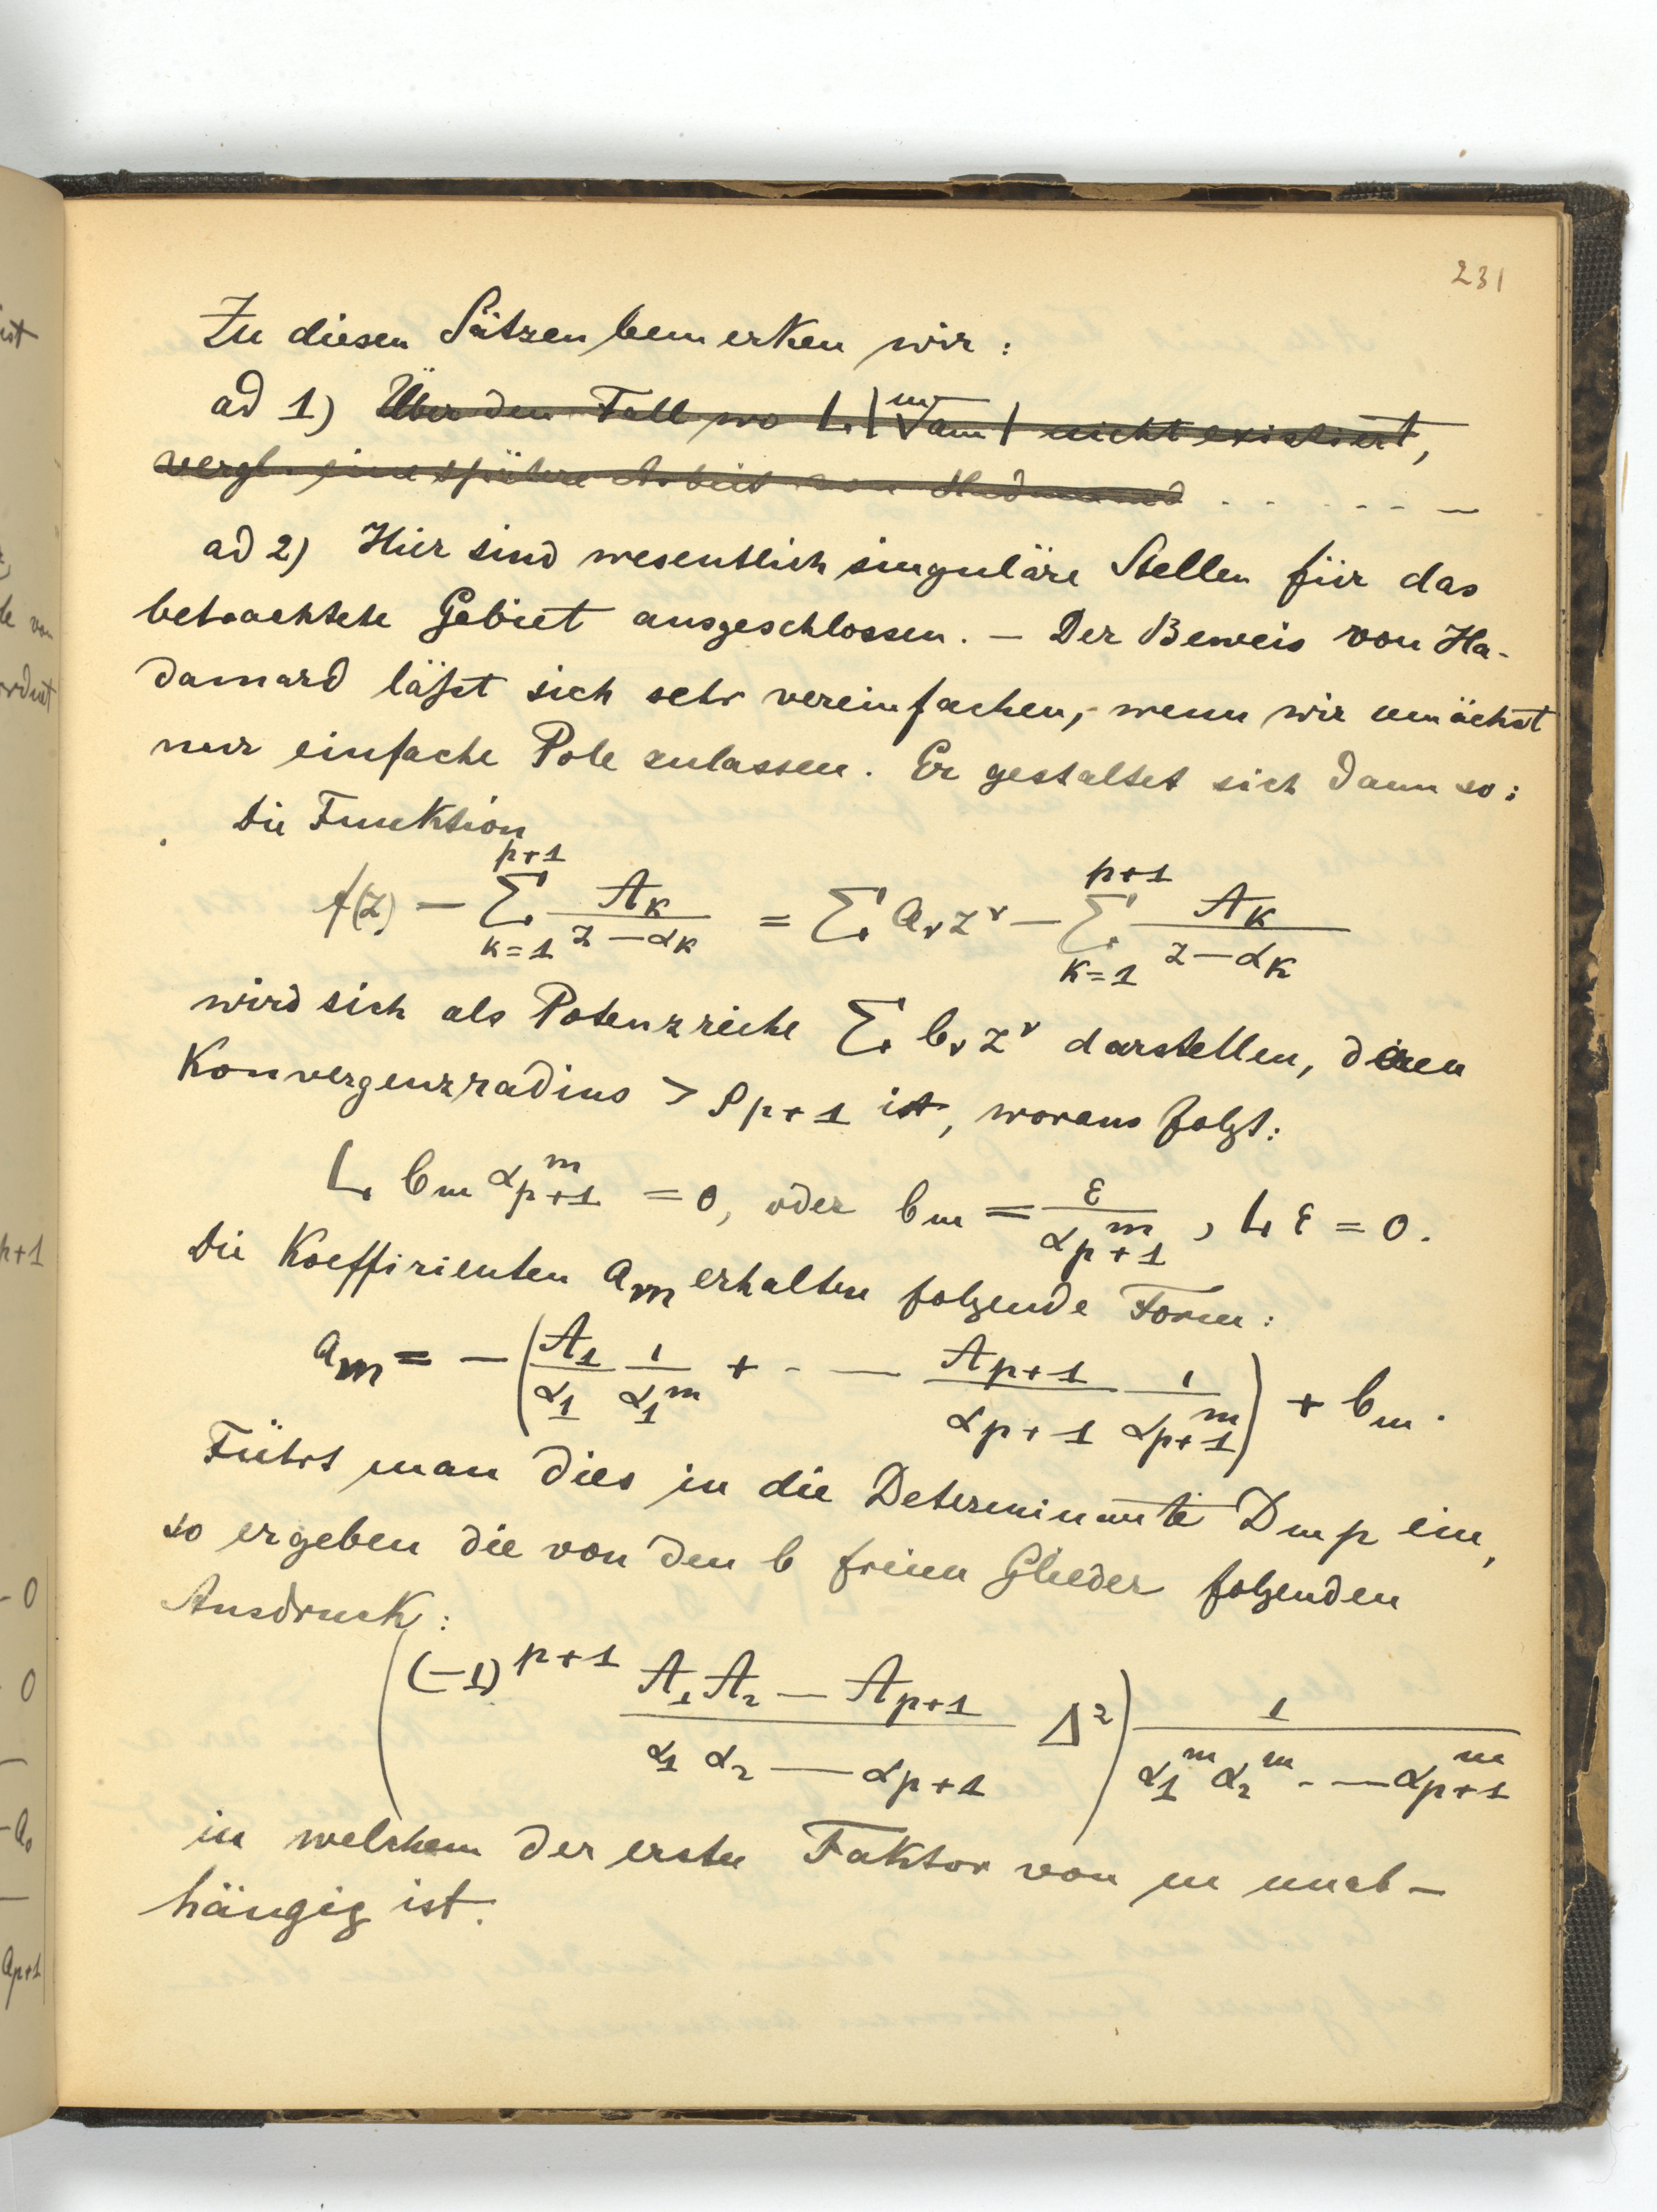 231
Zu diesen Sätzen bemerken wir:
ad 1) Über den Fall wo L |ᵐ√aₘ| nicht existiert,
vergl. eine spätere Arbeit von Hadamard . . . . . . –
ad 2) Hier sind wesentlich singuläre Stellen für das
betrachtete Gebiet ausgeschlossen. – Der Beweis von Ha-
damard läßt sich sehr vereinfachen, wenn wir zunächst
nur einfache Pole zulassen. Er gestaltet sich dann so:
Die Funktion
f(z) – ∑_{k=1}^{p+1} A_k/(z – α_k) = ∑ a_ν z^ν – ∑_{k=1}^{p+1} A_k/(z – α_k)
wird sich als Potenzreihe ∑ b_ν z^ν darstellen, deren
Konvergenzradius > ρ_{p+1} ist, woraus folgt:
L b_m α_{p+1}^m = 0, oder b_m = ε/α_{p+1}^m, L ε = 0.
Die Koeffizienten a_m erhalten folgende Form:
a_m = – (A_1/α_1 1/α_1^m + - — A_{p+1}/α_{p+1} 1/α_{p+1}^m) + b_m.
Führt man dies in die Determinante D_{mp} ein,
so ergeben die von den b freien Glieder folgenden
Ausdruck:
((–1)^{p+1} A_1 A_2 — A_{p+1}/α_1 α_2 — α_{p+1} Δ²) 1/α_1^m α_2^m - — α_{p+1}^m
in welchem der erste Faktor von m unab-
hängig ist.
ist
le von
ordnet
p+1
- 0
0
- a_0
a_{p+1}